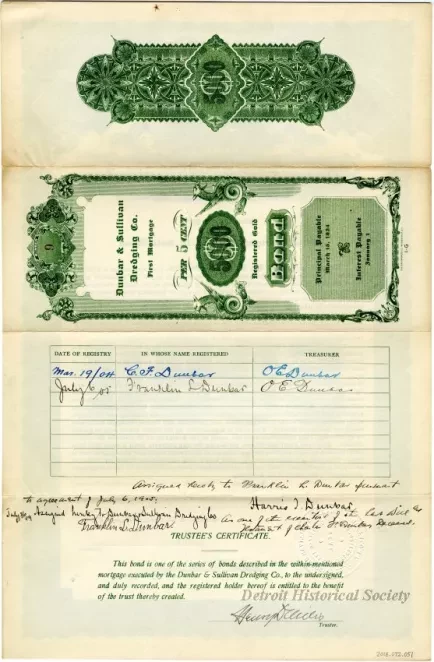 5000
9
Dunbar & Sullivan
Dredging Co.
First Mortgage
PER 5 CENT
5000
Registered Gold
Bond
Principal Payable
March 15, 1924
&
Interest Payable
January 1
DATE OF REGISTRY IN WHOSE NAME REGISTERED TREASURER
Mar. 19/04 C. F. Dunbar O E Dunbar
July 6/05 Franklin L Dunbar O E Dunbar
Assigned hereby to Franklin L. Dunbar pursuant
to agreement of July 6, 1905.
Harris T. Dunbar
as one of the executors of the last will &
testament of Charles F. Dunbar Deceased.
Assigned hereby to Dunbar & Sullivan Dredging Co
Franklin L. Dunbar
TRUSTEE'S CERTIFICATE.
This bond is one of the series of bonds described in the within-mentioned
mortgage executed by the Dunbar & Sullivan Dredging Co., to the undersigned,
and duly recorded, and the registered holder hereof is entitled to the benefit
of the trust thereby created.
Detroit Historical Society
Trustee.